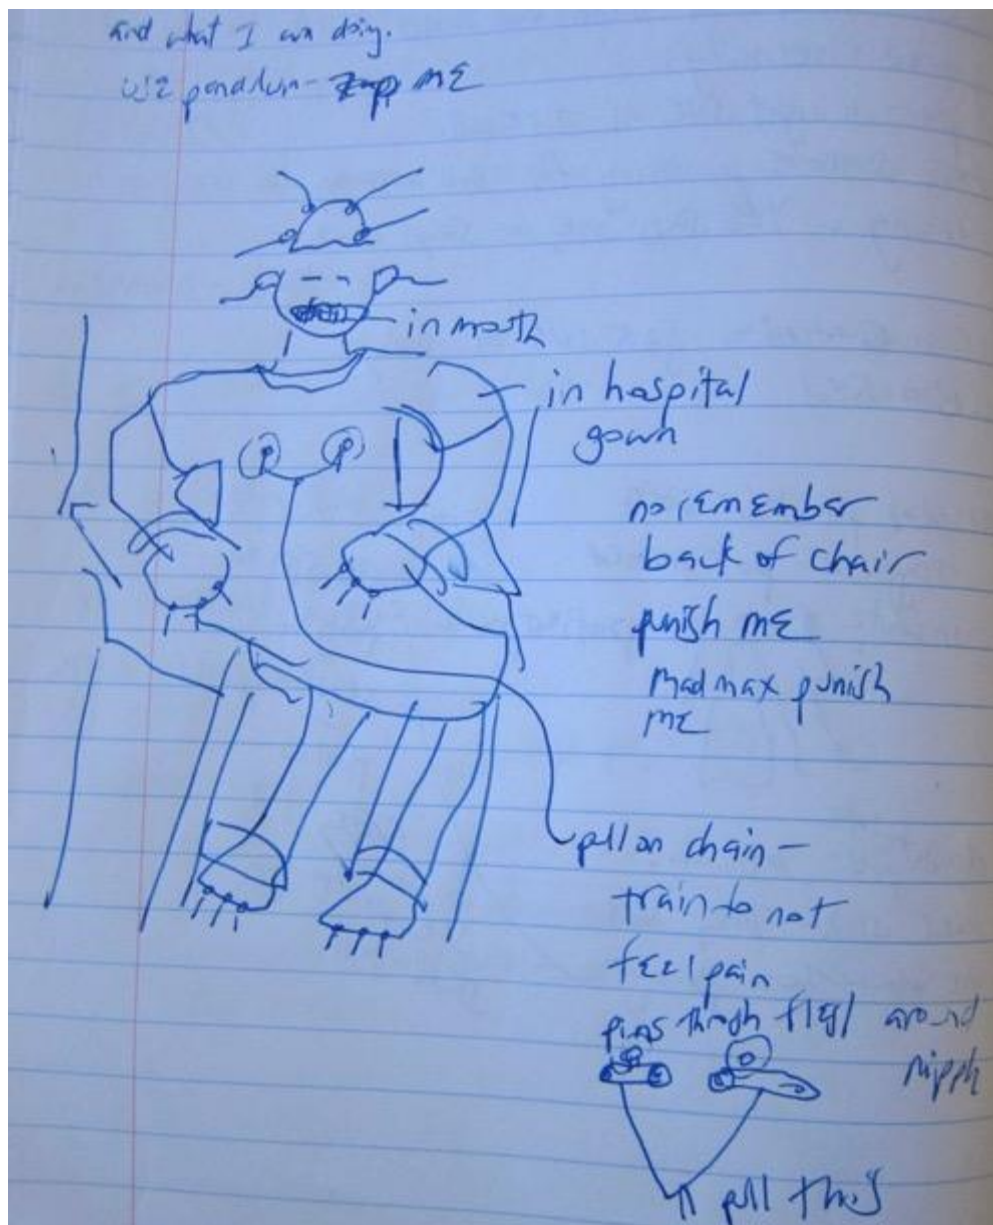 and what I am doing.
wiz pendulum - Zap ME
in mouth
in hospital
gown
no remember
back of chair
punish ME
Mad max punish
ME
pull on chain -
train to not
feel pain
pins through flesh around
nipple
pull this